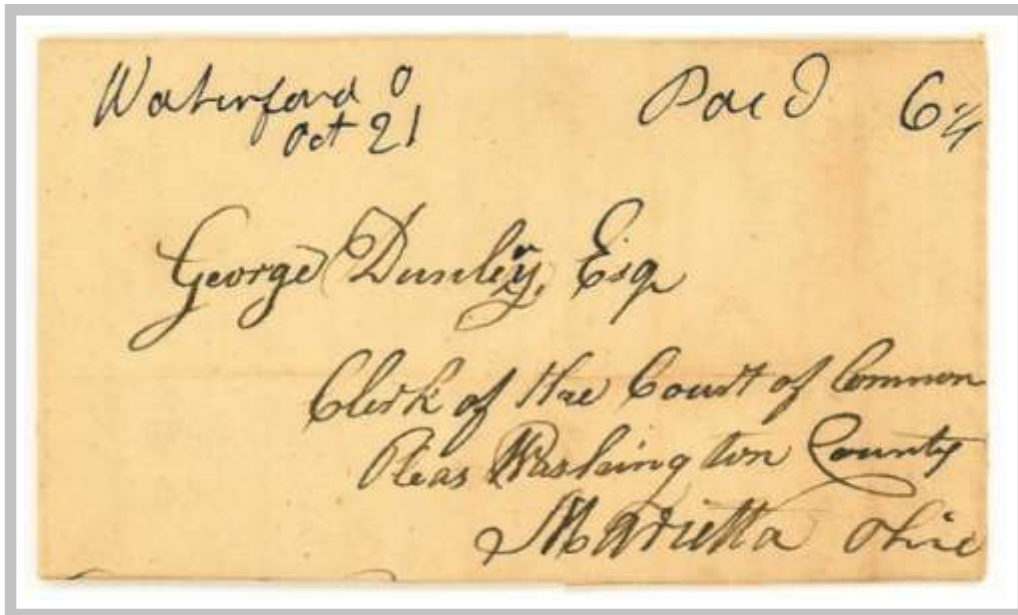 Waterford O
Oct 21
Paid 6 1/4
George Dunlevy, Esq
Clerk of the Court of Common
Pleas Washington County
Marietta Ohio